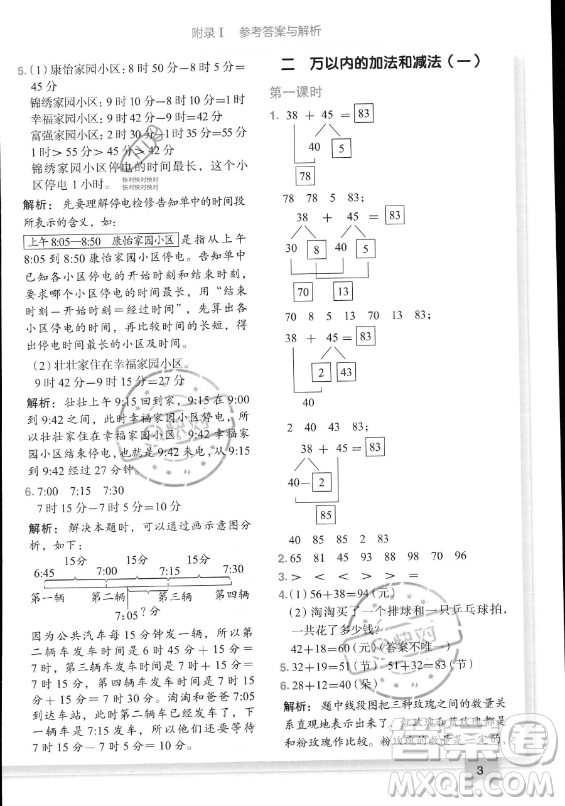 附录Ⅰ 参考答案与解析
5.(1)康怡家园小区:8时50分-8时5分=
45分
锦绣家园小区:9时10分-8时10分=1时
幸福家园小区:9时42分-8时47分=55分
富强家园小区:2时30分-1时35分=55分
1时>55分>45分
锦绣家园小区停电的时间最长,这个小
区停电1小时。
解析:先要理解停电检修告知单中的时间段
所表示的含义,如:
上午8:05—8:50 康怡家园小区 是指从上午
8:05到8:50康怡家园小区停电。告知单中
已知各小区停电的开始时刻和结束时刻,
要求哪个小区的时间最长,用“结束
时刻-开始时刻=经过时间”,计算出各
小区停电的时间,再比较时间的长短,得出
停电时间最长的小区及时间。
(2)壮壮家住在幸福家园小区。
9时42分-9时15分=27分
解析:壮壮上午9:15回到家,上午9:00
到9:42之间,此时幸福家园小区停电,所
以壮壮家住在幸福家园小区。9:42幸福家
园小区结束停电,所以从9:15开始到
9:42经过27分钟。
6.7:00 7:15 7:30
7时15分-7时5分=10分
解析:解决本题时,可以通过画示意图分
析,如下:
15分 15分 15分
6:45 7:00 7:15 7:30
第一辆 第二辆 第三辆 第四辆
7:05?分
因为公共汽车每隔15分发一辆,所以第
二辆车发车时间是6时45分+15分=
7时,第三辆车发车时间是7时+15分=
7时15分,第四辆车发车时间是7时15
分+15分=7时30分。淘淘和爸爸7时
5分到达车站,此时第二辆车已经发车,
第三辆车还没发车,所以他们还要等待
7时15分-7时5分=10分。
二 万以内的加法和减法(一)
第一课时
1. 38 + 45 = 83
40 5
78
78 78 5 83
38 + 45 = 83
30 8 40 5
70 13
70 8 5 13 70 83
38 + 45 = 83
2 43
40
2 40 43 83
38 + 45 = 83
40-2
85
40 85 85 2 83
2.63 65 83 98 70 96
3.> > < >
4.(1)56+38=94(元)
(2)淘淘买了一个排球和一只乒乓球拍,
一共花了多少钱?
42+18=60(元)(答案不唯一)
5.32+19=51(节) 51+32=83(节)
6.28+12=40(枝)
解析:题中线段图把三种玫瑰之间的数量关
系直观地表示出来了,红玫瑰和黄玫瑰都是
和粉玫瑰作比较。粉玫瑰的数量是一定的,
3
快对
快对快对快对
快对快对快对
作业精灵
MXQE.COM